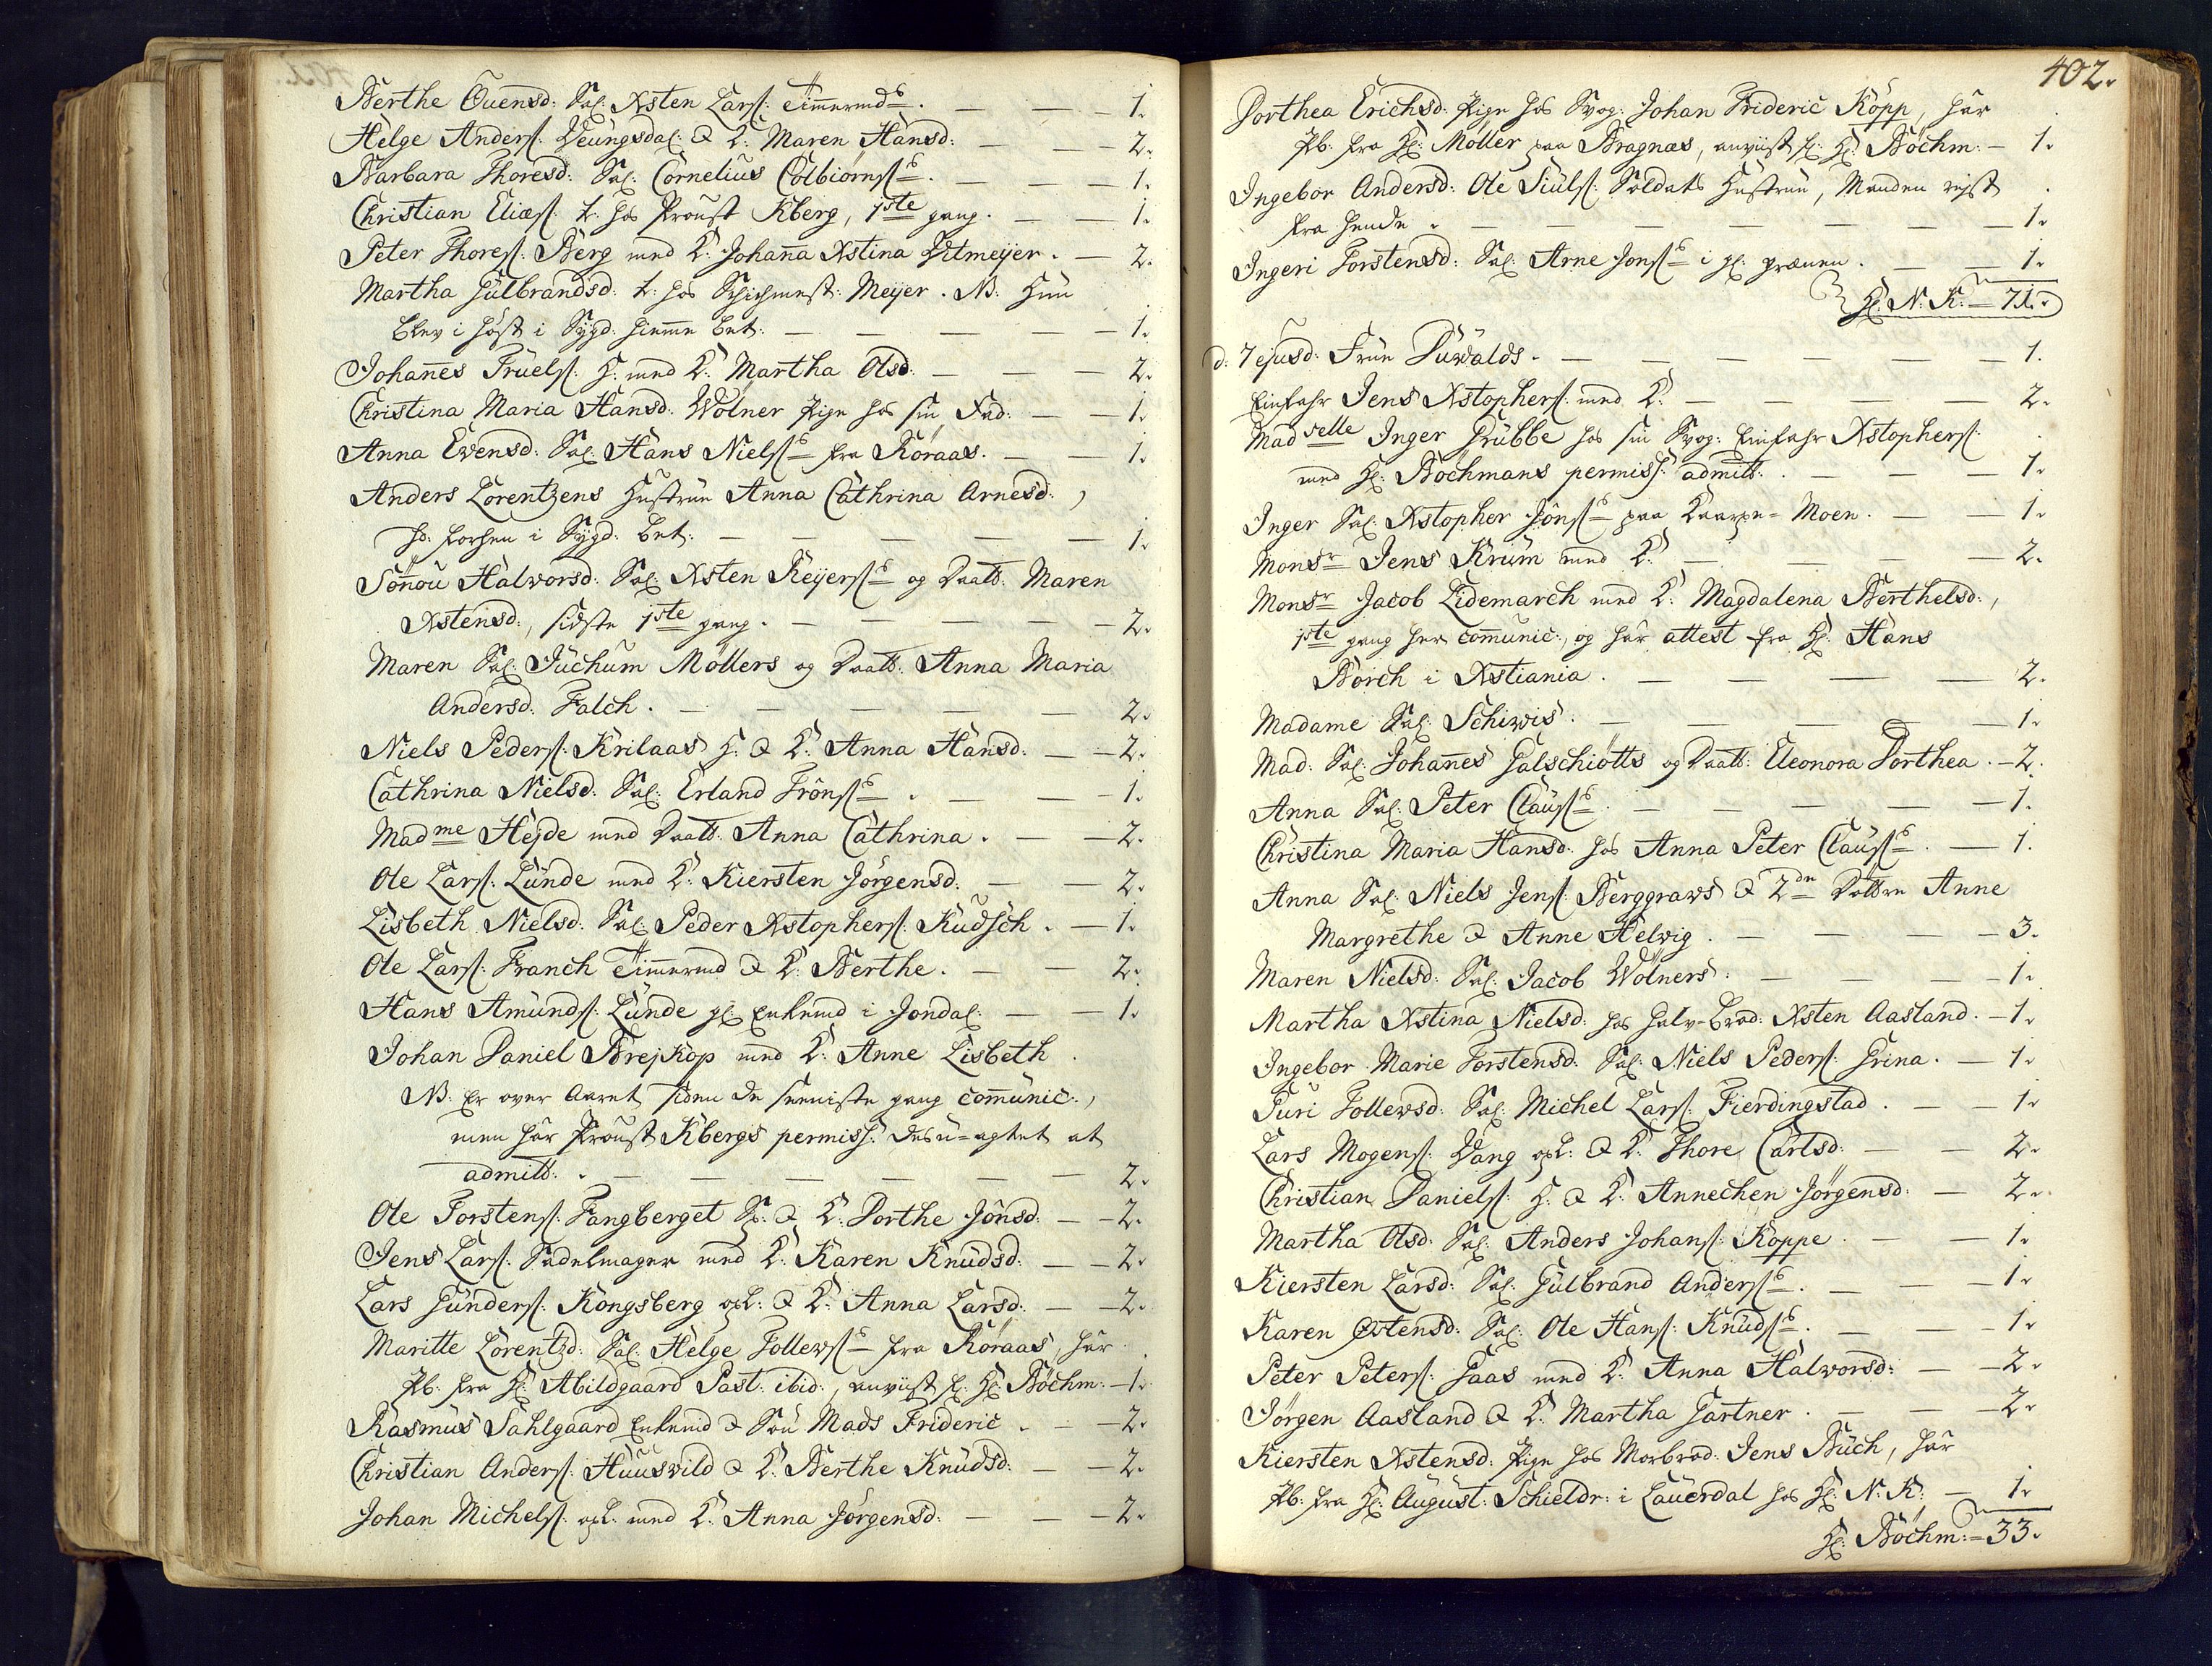 Berthe Ouensd: Sal: Xsten Larß: Tim̄ermds. — — 1.
Helge Anderß: Deungsdal: & K: Maren Hansd: — — 2.
Barbara Thoresd: Sal: Cornelius Colbiørnßs. — — — 1.
Christian Eliæß: t: hos Proust Kberg, 1ste gang. — — 1.
Peter Thoreß: Berg med K: Johan̄a Xstina Ditmeÿer. — 2.
Martha Gulbrandsd: t: hos Meÿer. NB. Hun
blev i høst i Sygd: hiem̄e bet: — — — — 1.
Johan̄es Truelß: H: med K: Martha Olsd: — — — 2.
Christina Maria Hansd: Wölner Pige hos sin Fad: — — 1.
Anna Evensd: Sal: Hans Nielßs fra Røraas. — — 1.
Anders Lorentzens Hustrue Anna Cathrina Arnesd:,
hd: forhen i Sygd: bet: — — — — — 1.
Sönou Halvorsd: Sal: Xsten Reÿerßs og Daatt: Maren
Xstensd:, sidste 1ste gang. — — — — — 2.
Maren Sal: Juchum Möllers og Daatt: Anna Maria
Andersd: Falch. — — — — — 2.
Niels Pederß: Krilaas H: & K: Anna Hansd: — — 2.
Cathrina Nielsd: Sal: Erland Trönßs. — — 1.
Madme Hejde med Daatt: Anna Cathrina. — — 2.
Ole Larß: Lunde med K: Kiersten Jørgensd: — — 2.
Lisbeth Nielsd: Sal: Peder Xstopherß: Kudsch. — 1.
Ole Larß: Franch Tim̄ermd & K: Berthe. — — 2.
Hans Amundß: Lunde gl: Enkemd i Jondal: — — 1.
Johan Daniel Brejkop med K: Anne Lisbeth.
NB. Er over Aaret siden de seeniste gang com̄unic:,
men har Proust Kbergs permiss: desu-agtet at
admitt:. — — — — — — 2.
Ole Torstenß: Fangberget S: & K: Dorthe Jönsd: — — 2.
Jens Larß: Sadelmager med K: Karen Knudsd: — — 2.
Lars Gunderß: Kongsberg opl: & K: Anna Larsd: — — 2.
Maritte Lorentzd: Sal: Helge Tollewßs fra Røraas, har
Pb: fra H: Abildgaard Past: ibid:, anviist f: H: Böchm: — 1.
Rasmus Dahlgaard Enkemd & Søn Mads Frideric. — — 2.
Christian Anderß: Huusvild & K: Berthe Knudsd: — — 2.
Johan Michelß: opl: med K: Anna Jørgensd: — — — 2.
402.
Dorthea Erichsd: Pige hos Svog: Johan Frideric Köpp, har
Pb: fra H: Möller paa Bragnæs, anviist f: H: Böchm: — 1.
Ingebor Andersd: Ole Siulß: Soldats Hustrue, Manden rejst
fra hende. — — — — — — — 1.
Ingeri Torstensd: Sal: Arne Jonßs i gl: grænen. — — 1.
H: N: K: — 71.
d: 7 ejusd: Frue Duwalds. — — — — — — 1.
Einfahr Jens Xstopherß: med K: — — — — 2.
Madselle Inger Grubbe hos sin Svog: Einfahr Xstopherß:
med H: Böchmans permiss: admitt:. — — — 1.
Inger Sal: Xstopher Jönßs paa Moen. — — 1.
Monsr Jens Krum med K: — — — — 2.
Monsr Jacob Lidemarch med K: Magdalena Berthelsd:,
1ste gang her com̄unic:, og har attest fra H: Hans
Borch i Xstiania. — — — — 2.
Madame Sal: Schiwis. — — — — — 1.
Mad: Sal: Johan̄es Galschiøtts og Daatt: Eleonora Dorthea. — 2.
Anna Sal: Peter Claußs. — — — — — 1.
Christina Maria Hansd: hos Anna Peter Claußs. — — 1.
Anna Sal: Niels Jenß: Berggraws & 2de Døttre Anne
Margrethe & Anne Helvig. — — — — 3.
Maren Nielsd: Sal: Jacob Wölners. — — — — 1.
Martha Xstina Nielsd: hos halv-Brod: Xsten Aasland. — 1.
Ingebor Marie Torstensd: Sal: Niels Pederß: Grina. — 1.
Guri Tollewsd: Sal: Michel Larß: Fierdingstad. — — 1.
Lars Mogenß: Vang opl: & K: Thore Carlsd: — — 2.
Christian Danielß: H: & K: Annechen Jørgensd: — 2.
Martha Olsd: Sal: Anders Johanß: Köppe. — — 1.
Kiersten Larsd: Sal: Gulbrand Anderßs. — — — 1.
Karen Ostensd: Sal: Ole Hanß: Knudßs. — — — 1.
Peter Peterß: Gaas med K: Anna Halvorsd: — — 2.
Jörgen Aasland & K: Martha Gartner. — — — 2.
Kiersten Xstensd: Pige hos Morbrod: Jens Buch, har
Pb: fra H: August: Schieldr: i Lauerdal hos H: N: K: — 1.
H: Böchm: — 33.